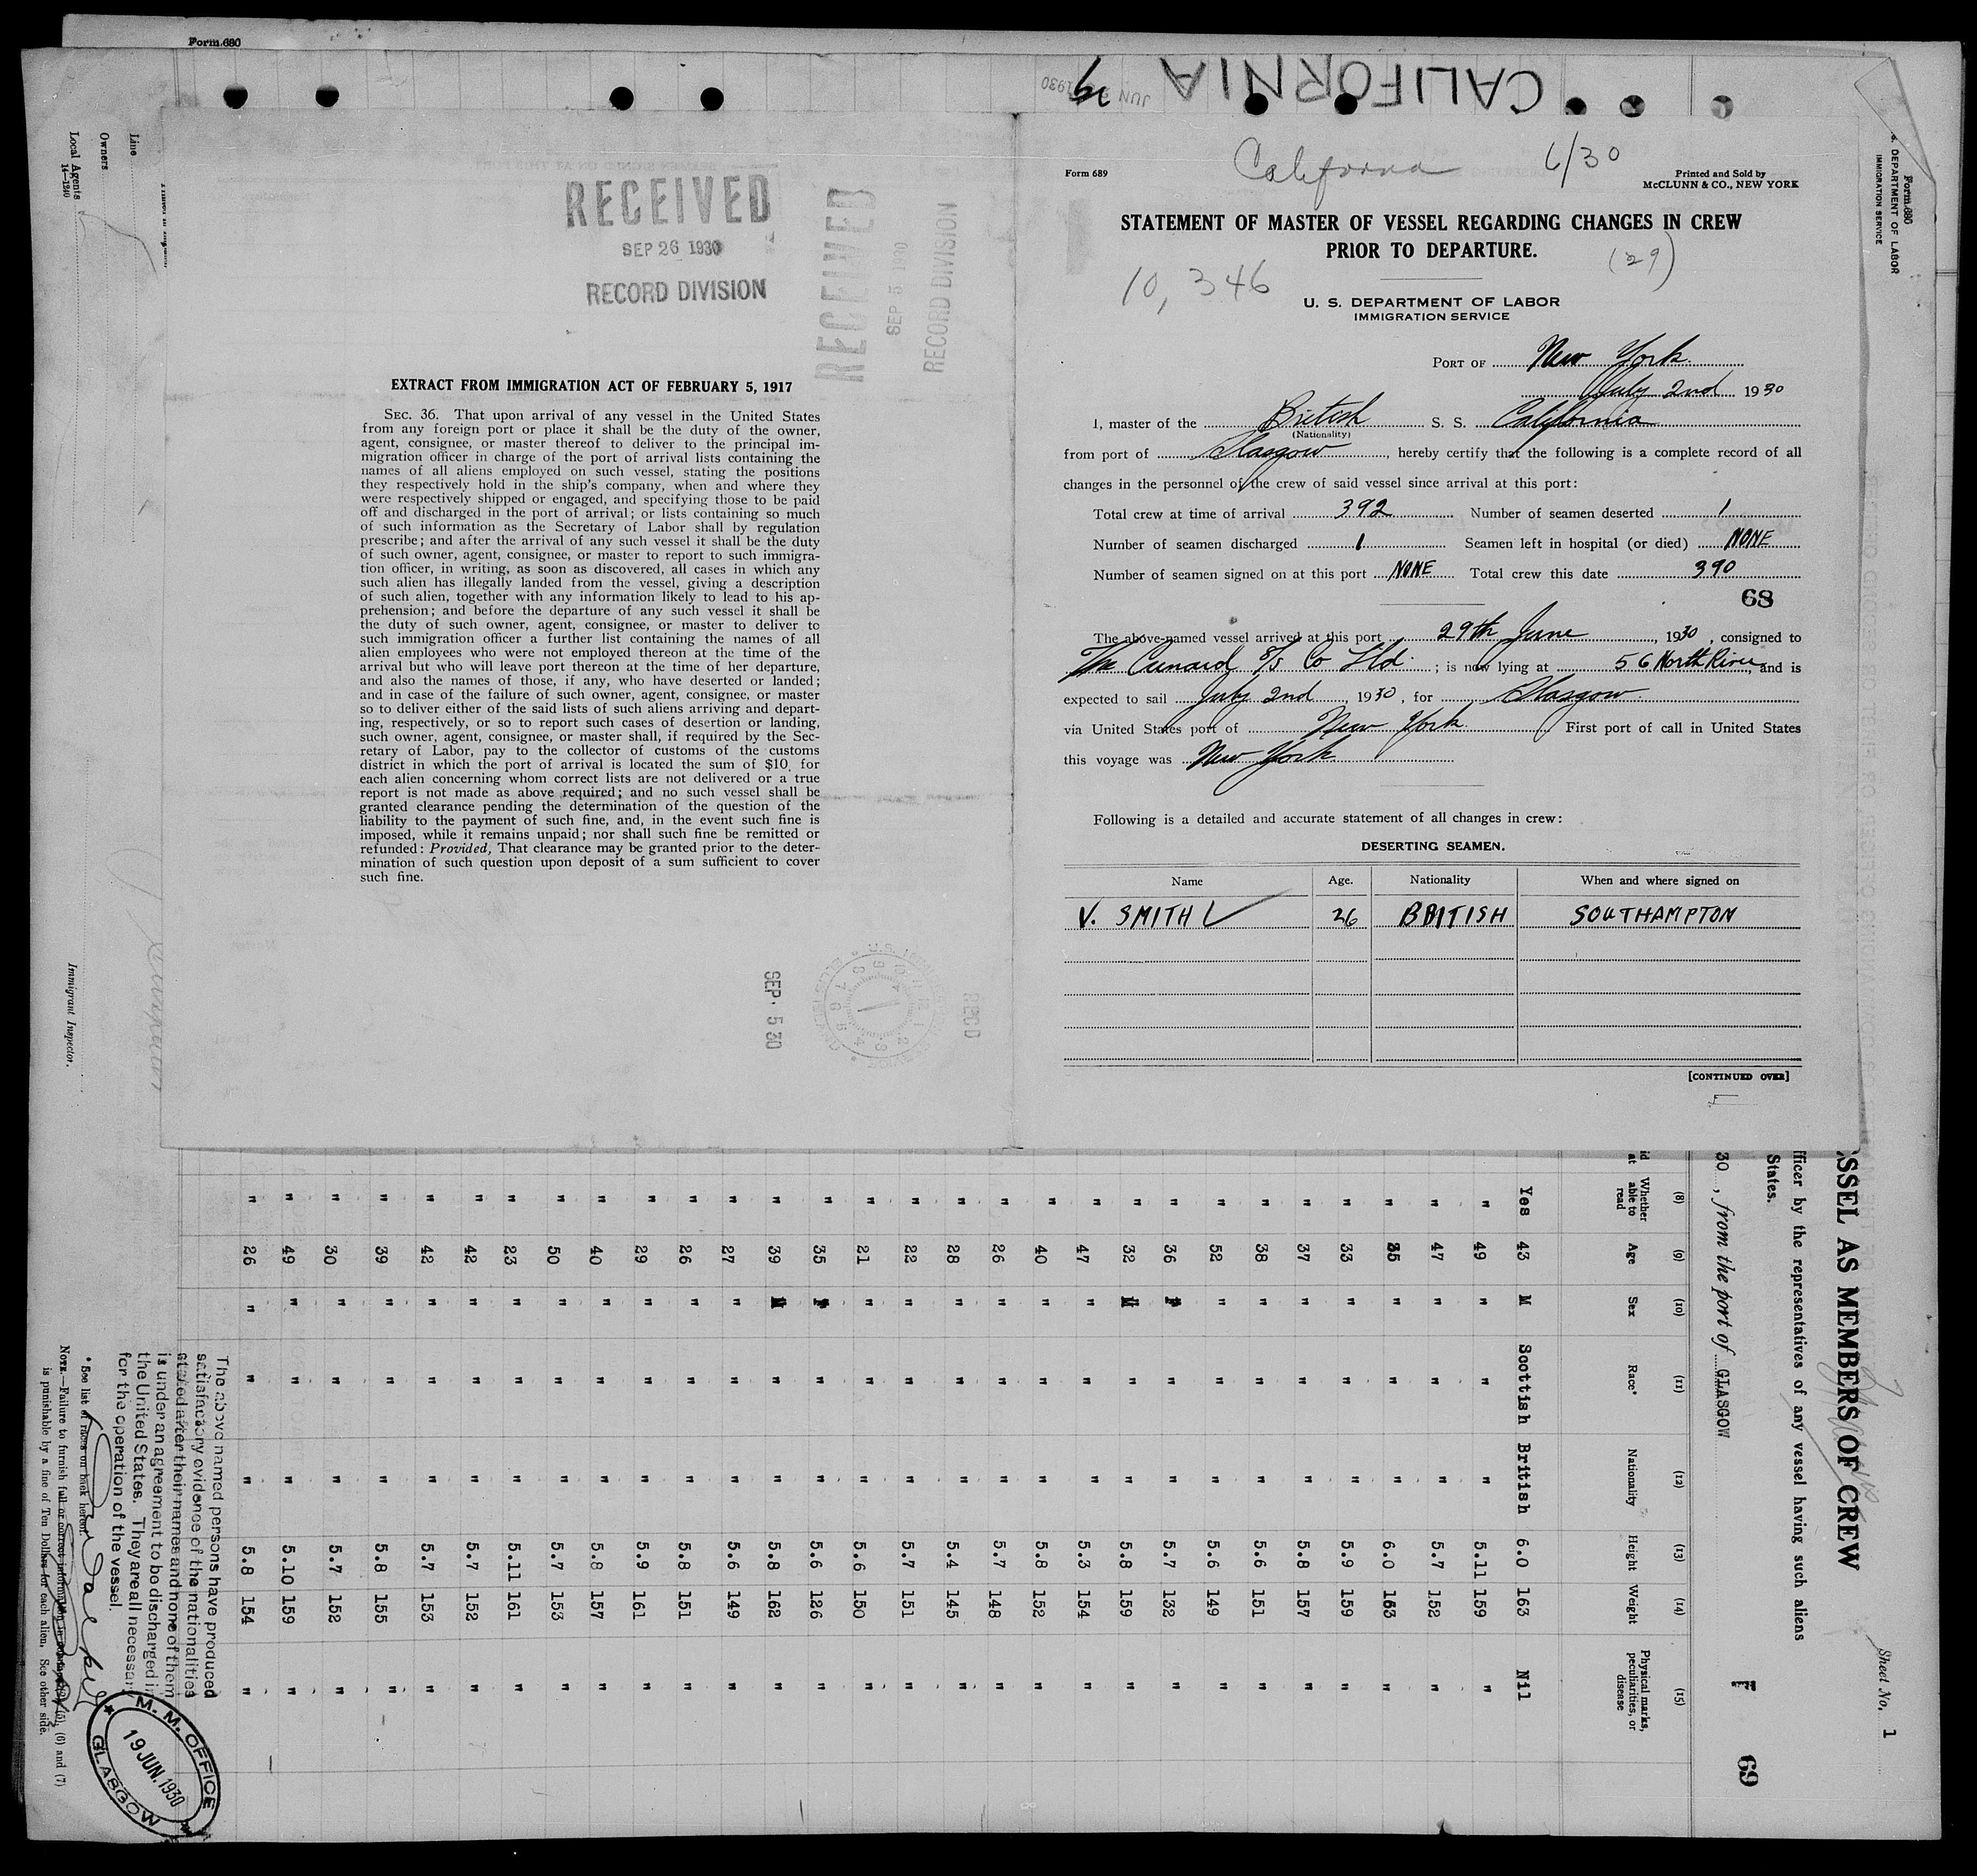 Form 680
CALIFORNIA
RECEIVED
SEP 26 1930
RECORD DIVISION
RECEIVED
SEP 5 1930
RECORD DIVISION
EXTRACT FROM IMMIGRATION ACT OF FEBRUARY 5, 1917
SEC. 36. That upon arrival of any vessel in the United States
from any foreign port or place it shall be the duty of the owner,
agent, consignee, or master thereof to deliver to the principal im-
migration officer in charge of the port of arrival lists containing the
names of all aliens employed on such vessel, stating the positions
they respectively hold in the ship's company, when and where they
were respectively shipped or engaged, and specifying those to be paid
off and discharged in the port of arrival; or lists containing so much
of such information as the Secretary of Labor shall by regulation
prescribe; and after the arrival of any such vessel it shall be the duty
of such owner, agent, consignee, or master to report to such immigra-
tion officer, in writing, as soon as discovered, all cases in which any
such alien has illegally landed from the vessel, giving a description
of such alien, together with any information likely to lead to his ap-
prehension; and before the departure of any such vessel it shall be
the duty of such owner, agent, consignee, or master to deliver to
such immigration officer a further list containing the names of all
alien employees who were not employed thereon at the time of the
arrival but who will leave port thereon at the time of her departure,
and also the names of those, if any, who have deserted or landed;
and in case of the failure of such owner, agent, consignee, or master
so to deliver either of the said lists of such aliens arriving and depart-
ing, respectively, or so to report such cases of desertion or landing,
such owner, agent, consignee, or master shall, if required by the Sec-
retary of Labor, pay to the collector of customs of the customs
district in which the port of arrival is located the sum of $10 for
each alien concerning whom correct lists are not delivered or a true
report is not made as above required; and no such vessel shall be
granted clearance pending the determination of the question of the
liability to the payment of such fine, and, in the event such fine is
imposed, while it remains unpaid; nor shall such fine be remitted or
refunded: Provided, That clearance may be granted prior to the deter-
mination of such question upon deposit of a sum sufficient to cover
such fine.
SEP. 5 30
REC'D
Form 689
California 6/30
Printed and Sold by
McCLUNN & CO., NEW YORK
STATEMENT OF MASTER OF VESSEL REGARDING CHANGES IN CREW
PRIOR TO DEPARTURE.
10,346 (29)
U. S. DEPARTMENT OF LABOR
IMMIGRATION SERVICE
PORT OF New York
July 2nd 1930
I, master of the British S. S. California
(Nationality)
from port of Glasgow, hereby certify that the following is a complete record of all
changes in the personnel of the crew of said vessel since arrival at this port:
Total crew at time of arrival 392 Number of seamen deserted 1
Number of seamen discharged 1 Seamen left in hospital (or died) NONE
Number of seamen signed on at this port NONE Total crew this date 390
68
The above-named vessel arrived at this port 29th June, 1930, consigned to
The Cunard S/S Co Ltd.; is now lying at 56 North River, and is
expected to sail July 2nd, 1930, for Glasgow
via United States port of New York First port of call in United States
this voyage was New York
Following is a detailed and accurate statement of all changes in crew:
DESERTING SEAMEN.
Name Age. Nationality When and where signed on
V. SMITH 26 BRITISH SOUTHAMPTON
[CONTINUED OVER]
Form 680
U. S. DEPARTMENT OF LABOR
IMMIGRATION SERVICE
Sheet No. 1
SSEL AS MEMBERS OF CREW
fficer by the representatives of any vessel having such aliens
States.
30, from the port of GLASGOW
7 69
(8) (9) (10) (11) (12) (13) (14) (15)
Whether able to read Age Sex Race* Nationality Height Weight Physical marks, peculiarities, or disease
Yes 43 M Scottish British 6.0 163 Nil
" 49 " " " 5.11 159 "
" 47 " " " 5.7 152 "
" 35 " " " 6.0 163 "
" 33 " " " 5.9 159 "
" 37 " " " 5.8 157 "
" 38 " " " 5.6 151 "
" 52 " " " 5.6 149 "
" 36 F " " 5.7 132 "
" 32 M " " 5.8 159 "
" 47 " " " 5.3 154 "
" 40 " " " 5.8 152 "
" 26 " " " 5.7 148 "
" 28 " " " 5.4 145 "
" 22 " " " 5.7 151 "
" 21 " " " 5.6 150 "
" 35 F " " 5.6 126 "
" 39 M " " 5.8 162 "
" 27 " " " 5.6 149 "
" 26 " " " 5.8 151 "
" 29 " " " 5.9 161 "
" 40 " " " 5.8 157 "
" 50 " " " 5.7 153 "
" 23 " " " 5.11 161 "
" 42 " " " 5.7 152 "
" 42 " " " 5.7 153 "
" 39 " " " 5.8 155 "
" 30 " " " 5.7 152 "
" 49 " " " 5.10 159 "
" 26 " " " 5.8 154 "
The above named persons have produced
satisfactory evidence of the nationalities
stated after their names and none of them
is under an agreement to be discharged in
the United States. They are all necessary
for the operation of the vessel.
* See list of races on back hereof.
NOTE.—Failure to furnish full or correct information in columns (5), (6) and (7)
is punishable by a fine of Ten Dollars for each alien. See other side.
M. M. OFFICE
19 JUN. 1930
GLASGOW
Line
Owners
Local Agents
14—1240
Immigrant Inspector.